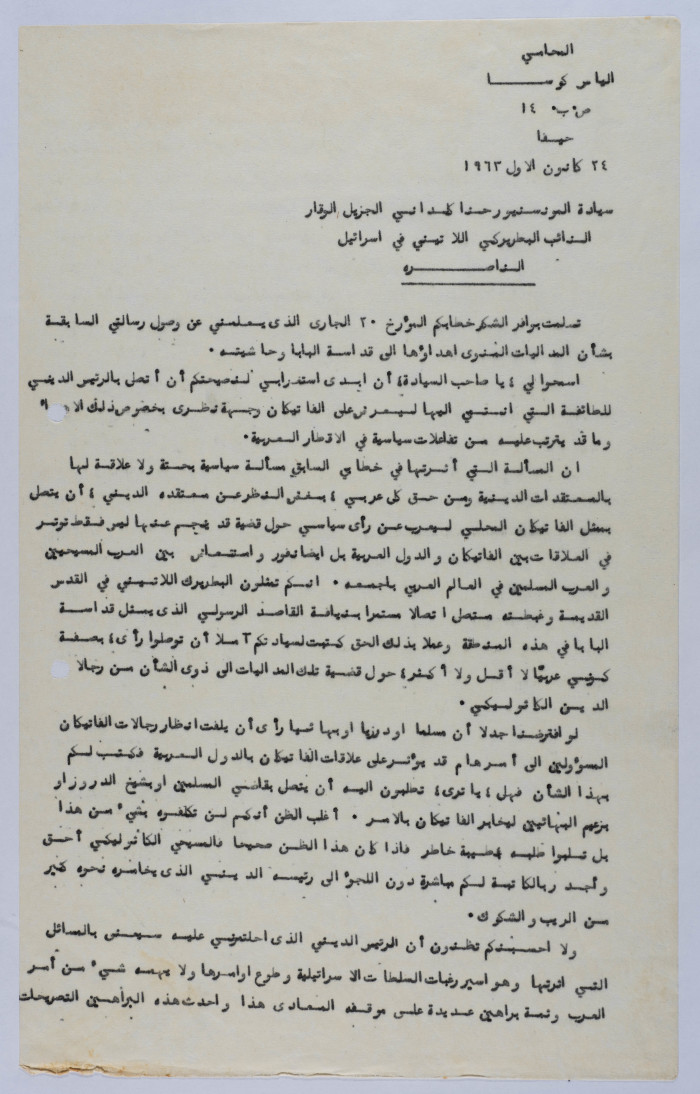 المحامي
الياس كوسا
ص٠ب٠ ١٤
حيفا
٢٤ كانون الاول ١٩٦٣
سيادة المونسنيور حنا كلداني الجزيل الوقار
النائب البطريركي اللاتيني في اسرائيل
الناصره
تسلمت بوافر الشكر خطابكم المؤرخ ٢٠ الجارى الذى يعلمني عن وصول رسالتي السابقة
بشأن المداليات المنوى اهداؤها الى قداسة البابا وحاشيته٠
اسمحوا لي ، يا صاحب السيادة، أن ابدى استغرابي لنصيحتكم أن أتصل بالرئيس الديني
للطائفة التي انتمي اليها ليعرض على الفاتيكان وجهة نظرى بخصوص ذلك
وما قد يترتب عليه من تفاعلات سياسية في الاقطار العربية٠
ان المسألة التي أثرتها في خطابي السابق مسألة سياسية بحتة ولا علاقة لها
بالمعتقدات الدينية ومن حق كل عربي ، بغض النظر عن معتقده الديني ، أن يتصل
بممثل الفاتيكان المحلي ليعرب عن رأى سياسي حول قضية قد ينجم عنها ليس فقط توتر
في العلاقات بين الفاتيكان والدول العربية بل ايضا نفور واستنعاض بين العرب المسيحيين
والعرب المسلمين في العالم العربي باجمعه٠ انكم تمثلون البطريرك اللاتيني في القدس
القديمة وغبطته متصل اتصالا مستمرا بنيافة القاصد الرسولي الذى يمثل قداسة
البابا في هذه المنطقة وعملا بذلك الحق كتبت لسيادتكم آملا أن توصلوا رأى ، بصفة
كوني عربيا لا أقل ولا أكثر، حول قضية تلك المداليات الى ذوى الشأن من رجالا
الدين الكاثوليكي٠
لو افترضنا جدلا أن مسلما او درزيا او بهائيا رأى أن يلفت انظار رجالات الفاتيكان
المسؤولين الى أمر هام قد يؤثر على علاقات الفاتيكان بالدول العربية فكتب لكم
بهذا الشأن فهل ، يا ترى ، تطلبون اليه أن يتصل بقاضي المسلمين او بشيخ الدروز او
بزعيم البهائيين ليخابر الفاتيكان بالامر ٠ أغلب الظن أنكم لن تكلفوه بشيء من هذا
بل تسلموا طلبه بطيبة خاطر فاذا كان هذا الظن صحيحا فالمسيحي الكاثوليكي أحق
وأجدر بالكاتبة لكم مباشرة دون اللجؤ الى رئيسه الديني الذى يخامره نحوه كثير
من الريب والشكوك٠
ولا احسبنكم تظنون أن الرئيس الديني الذى احلتموني عليه سيعنى بالمسائل
التي اثرتها وهو اسير رغبات السلطات الاسرائيلية وطوع اوامرها ولا يهمه شيء من أمر
العرب وثمة براهين عديدة على موقفه المعادى هذا واحدث هذه البراهين التصريحات